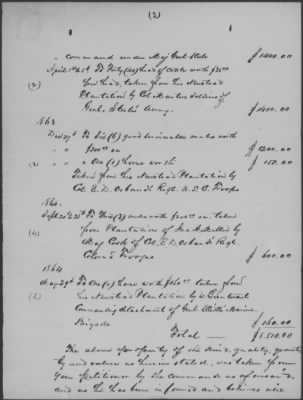 (2)
" command under Maj Genl Steele $1400.00
April 1863 To Forty (40) head of cattle worth $35.00
(2) per head, taken from his
Plantation by Col soldiers of
Genl Steele's Army. $1400.00
1863
Decr 27th To Six (6) good serviceable mules worth
" " $200.00 ea $1200.00
(3) " " One (1) horse worth $150.00
Taken from his Plantation by
Col E. D. Osband's Regt. U.S.C. Troops
1864
Sept To mules worth $200.00 ea. taken
(4) from Plantation of by
Maj Cook of Col E. D. Osband's Regt.
Colored Troops $600.00
1864
May 29th To One (1) horse worth $160.00 taken from
(5) his Plantation by a Lieutenant
Commanding detachment of Genl Marine
Brigade $160.00
Total $5,510.00
The above property of the kind, quality, quantity
and value as herein stated, was taken from
your petitioner by the commands as aforesaid,
and as he has been informed and believes were